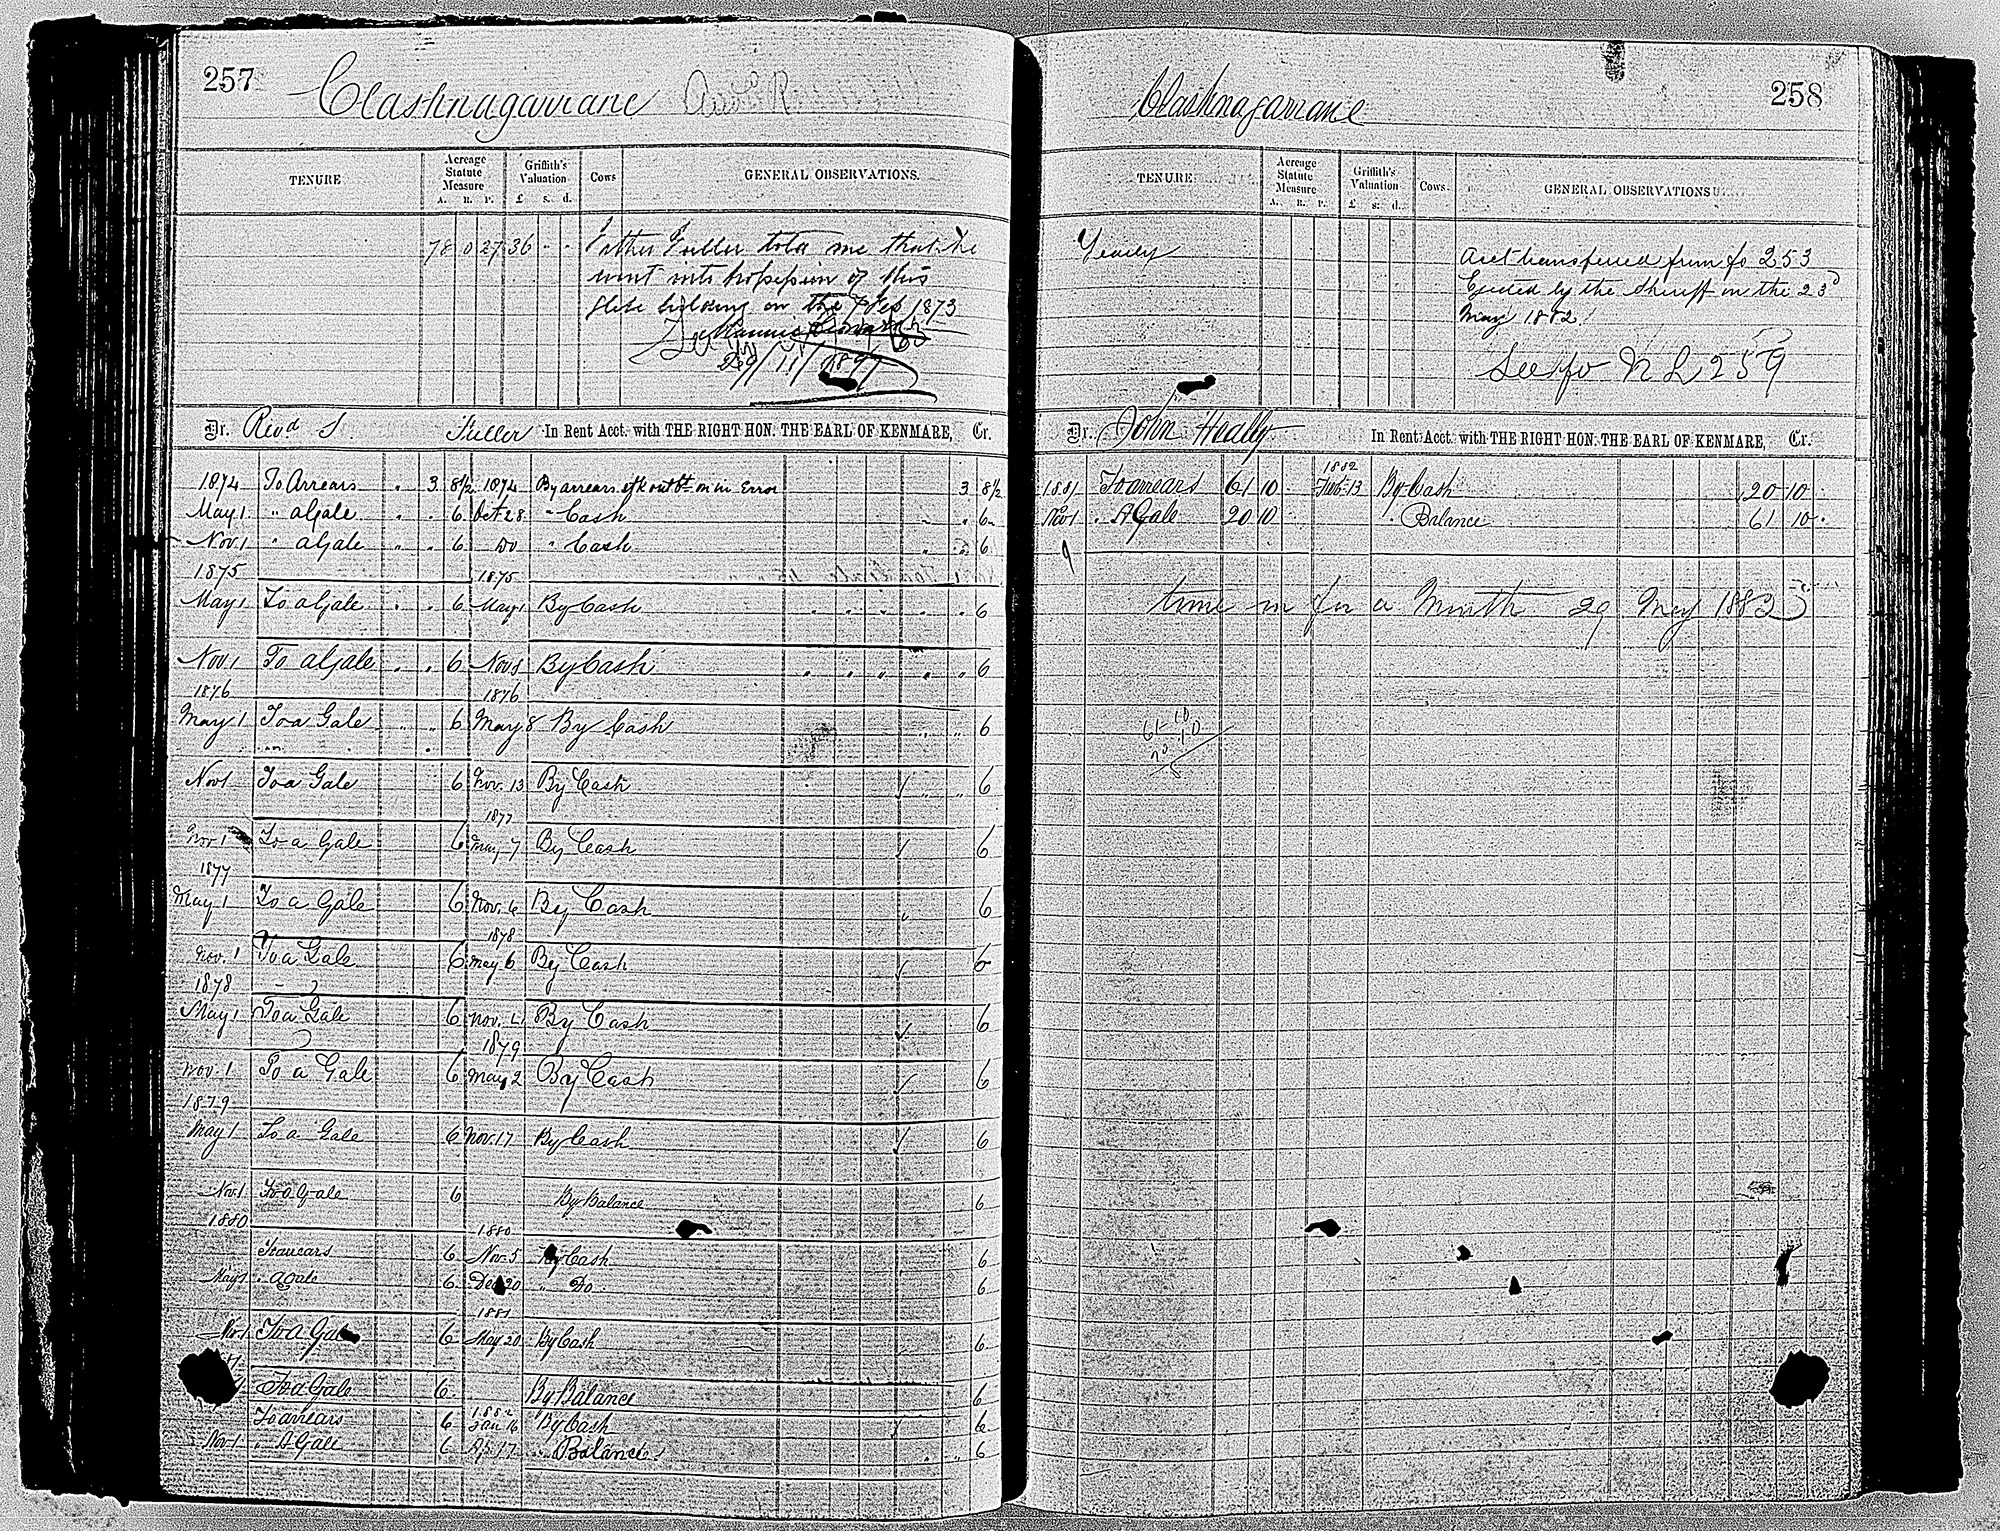 257
Clashnagarrane
TENURE
Acreage Statute Measure
A. R. P.
Griffith's Valuation
£ s. d.
Cows
GENERAL OBSERVATIONS.
78 0 27 36 " "
Father Fuller told me that he
went into possession of this
glebe holding on the 7 Feb 1873
Dr. Revd S. Fuller In Rent Acct. with THE RIGHT HON. THE EARL OF KENMARE, Cr.
1874 To Arrears " 3 8½ 1874 By arrears 3 8½
May 1 " a Gale " " 6 Oct 28 " Cash " " 6
Nov 1 " a Gale " " 6 Do " Cash " " 6
1875 1875
May 1 To a Gale " " 6 May 1 By Cash " " " " " 6
Nov 1 To a Gale " " 6 Nov 8 By Cash " " " " " 6
1876 1876
May 1 To a Gale " " 6 May 8 By Cash " " 6
Nov 1 To a Gale 6 Nov. 13 By Cash " " 6
1877
Nov 1 To a Gale 6 May 7 By Cash 6
1877
May 1 To a Gale 6 Nov. 6 By Cash 6
1878
Nov. 1 To a Gale 6 May 6 By Cash 6
1878
May 1 To a Gale 6 Nov. 4 By Cash 6
1879
Nov. 1 To a Gale 6 May 2 By Cash 6
1879
May 1 To a Gale 6 Nov. 17 By Cash 6
Nov 1 To a Gale 6 By Balance 6
1880 1880
To arrears 6 Nov. 5 By Cash 6
May 1 " a gale 6 Dec 20 " Do 6
1881
Nov 1 To a Gale 6 May 20 By Cash 6
To a Gale 6 By Balance 6
1882
To arrears 6 Jan 16 By Cash 6
Nov 1 " A Gale 6 Ap 17 " Balance " " 6
258
Clashnagarrane
TENURE
Acreage Statute Measure
A. R. P.
Griffith's Valuation
£ s. d.
Cows.
GENERAL OBSERVATIONS
Yearly
Acct transferred from fo 253
Ejected by the Sheriff on the 23d
May 1882.
See fo N L 259
Dr. John Healy In Rent Acct. with THE RIGHT HON. THE EARL OF KENMARE, Cr.
1882
1881 To arrears 61 10 Feb 13 By Cash 20 10
Nov 1 " A Gale 20 10 " Balance 61 10
time in for a Month 29 May 1882
61 10
20 10